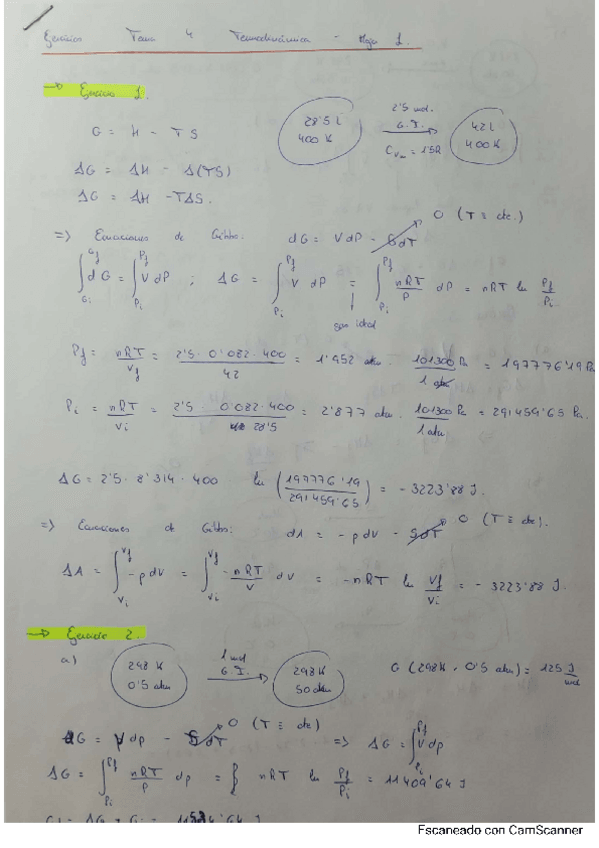 Ejercicios Tema 4 Termodinámica - Hoja 1.
→ Ejercicio 1.
G = H - TS
28'5 L
400 K
2'5 mol
G. I.
C_Vm = 1'5R
42 L
400 K
ΔG = ΔH - Δ(TS)
ΔG = ΔH - TΔS.
=> Ecuaciones de Gibbs: dG = V dP - S dT 0 (T ≡ cte.)
∫_{Gi}^{Gf} dG = ∫_{Pi}^{Pf} V dP ; ΔG = ∫_{Pi}^{Pf} V dP = ∫_{Pi}^{Pf} nRT/P dP = nRT ln Pf/Pi
gas ideal
Pf = nRT/Vf = 2'5 · 0'082 · 400 / 42 = 1'952 atm · 101300 Pa / 1 atm = 197776'19 Pa
Pi = nRT/Vi = 2'5 · 0'082 · 400 / 28'5 = 2'877 atm · 101300 Pa / 1 atm = 291459'65 Pa.
ΔG = 2'5 · 8'314 · 400 ln (197776'19 / 291459'65) = - 3223'88 J.
=> Ecuaciones de Gibbs: dA = - p dV - S dT 0 (T ≡ cte).
ΔA = ∫_{Vi}^{Vf} -p dV = ∫_{Vi}^{Vf} - nRT/V dV = -nRT ln Vf/Vi = - 3223'88 J.
→ Ejercicio 2.
a)
298 K
0'5 atm
1 mol
G. I.
298 K
50 atm
G (298 K, 0'5 atm) = 125 J/mol
dG = V dp - S dT 0 (T ≡ cte) => ΔG = ∫_{Pi}^{Pf} V dp
ΔG = ∫_{Pi}^{Pf} nRT/P dp = nRT ln Pf/Pi = 11409'64 J
= ΔG + Gi = 11534'64 J
Escaneado con CamScanner